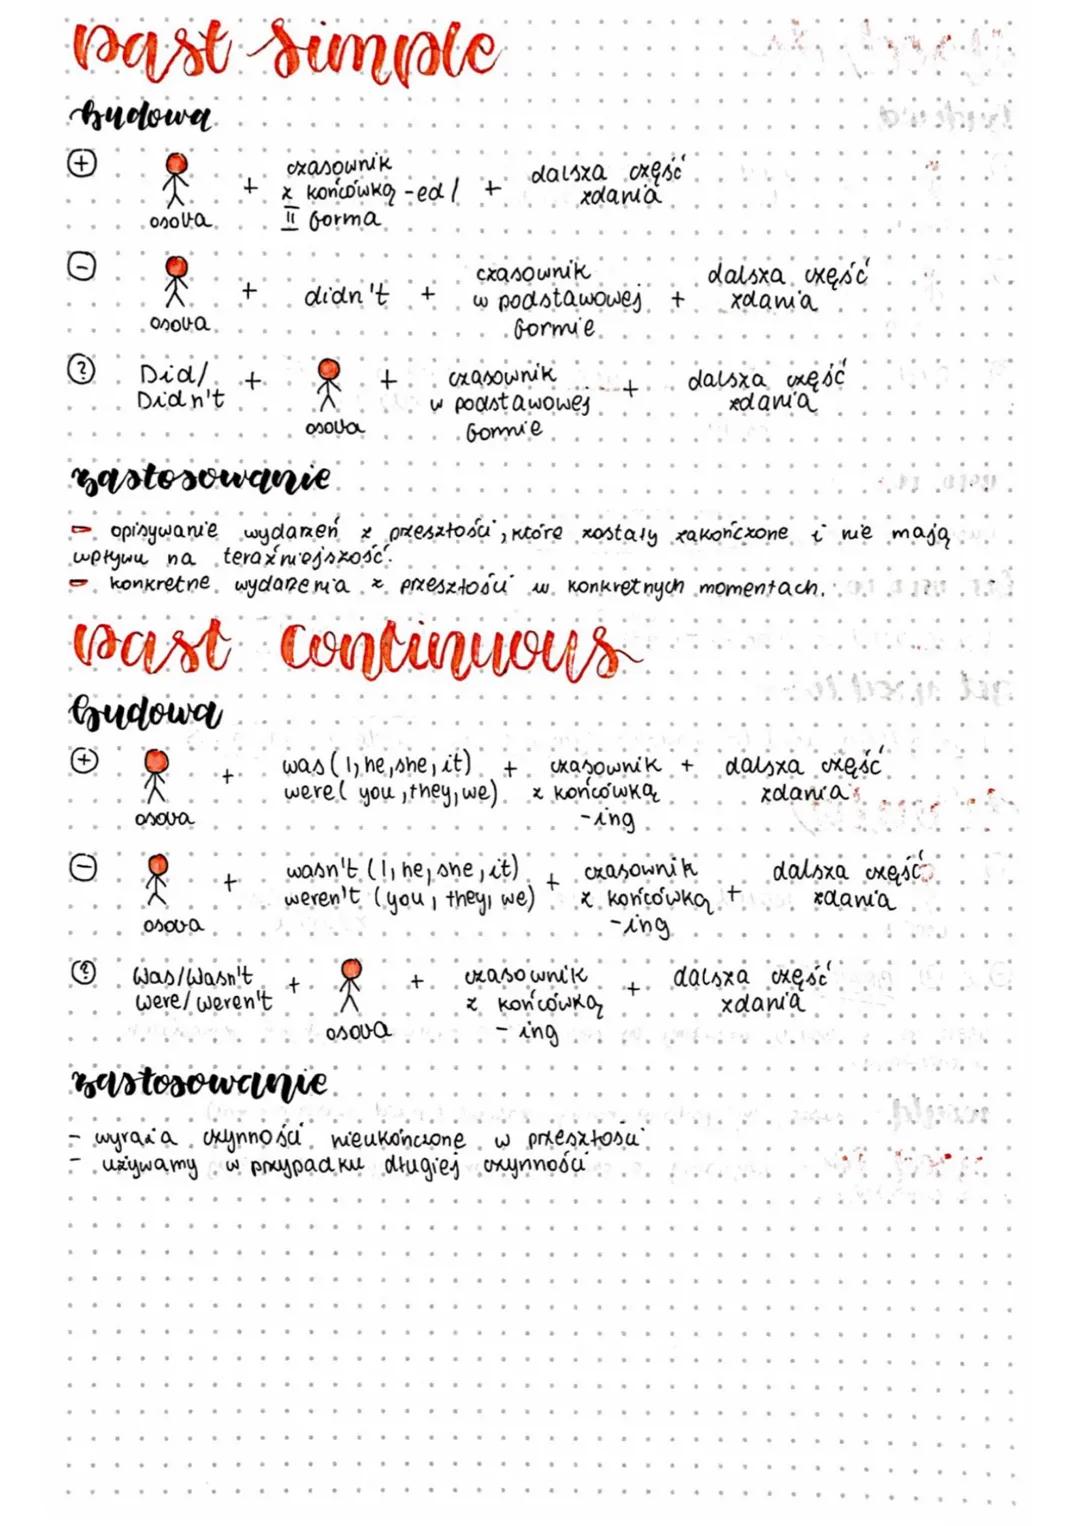 past simple
budowa
+ osoba + czasownik z końcówką -ed / II forma + dalsza część zdania
- osoba + didn't + czasownik w podstawowej formie + dalsza część zdania
? Did/ Didn't + osoba + czasownik w podstawowej formie + dalsza część zdania
zastosowanie
- opisywanie wydarzeń z przeszłości, które zostały zakończone i nie mają
wpływu na teraźniejszość.
- konkretne wydarzenia z przeszłości w konkretnych momentach.
past continuous
budowa
+ osoba + was (I, he, she, it) were (you, they, we) + czasownik z końcówką -ing + dalsza część zdania
- osoba + wasn't (I, he, she, it) weren't (you, they, we) + czasownik z końcówką -ing + dalsza część zdania
? Was/Wasn't Were/weren't + osoba + czasownik z końcówką -ing + dalsza część zdania
zastosowanie
- wyraża czynności nieukończone w przeszłości
- używamy w przypadku długiej czynności